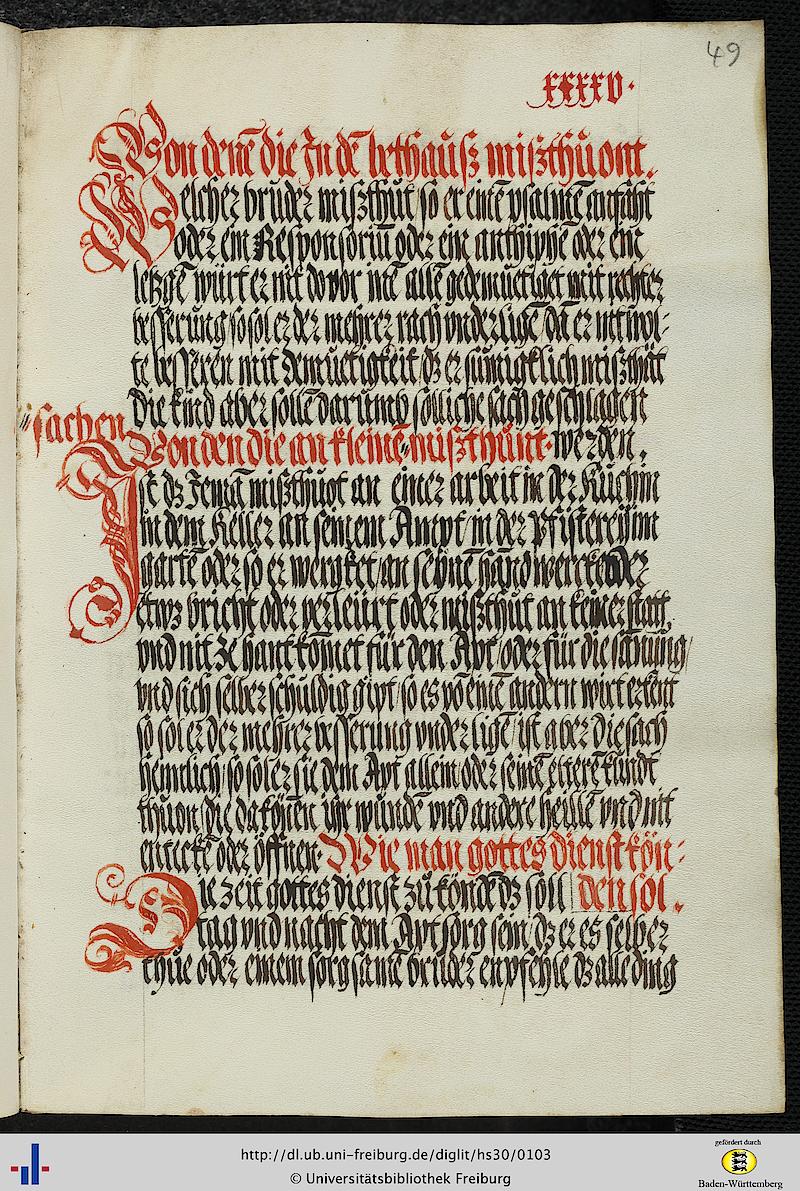 49
xxxxv.
Von denē die In dē bethausz miszthuont.
Welcher bruder miszthut / so er einen psalmen anfaht
oder ein Responsoriū oder ein anthiphē oder ein
letzgē würt er nit do vor inē allē gedemuetiget mit rechter
besserung so sol er der mehrer rach vnderligē / da er nit wol-
te besseren mit demuetigkeit / dz er sumigklich miszthät
die kind aber sollē darumb solliche sach geschlagen
sachen Von den die an kleinē miszthünt. werden.
Ist dz Jemā miszthuot an einer arbeit in der Kuchin
in dem Keller an seinem Ampt / in der Pfisterey im
gartē oder so er wercket / an seinem handwerck oder
etwz bricht oder verleürt oder miszthut an keiner statt
vnd nit ze hant kōmet für den Apt / oder für die samung /
vnd sich selber schuldig gipt / so es vō einē andern wirt erkent
so sol er der mehrer besserung vnder ligē / ist aber die sach
heimlich / so sol er sie dem Apt allein / oder seinē elterē kundt
thuon / die da könen ire wundē vnd andere heillē vnd nit
entteckē oder öffnen. Wie man gottes dienst kön-
Die zeit gottes dienst zu köndē dz soll den sol.
tag vnd nacht dem Apt sorg sein / dz er es selber
thüe oder einem sorgsamē bruder enpfehle dz alle ding
http://dl.ub.uni-freiburg.de/diglit/hs30/0103
© Universitätsbibliothek Freiburg
gefördert durch
Baden-Württemberg